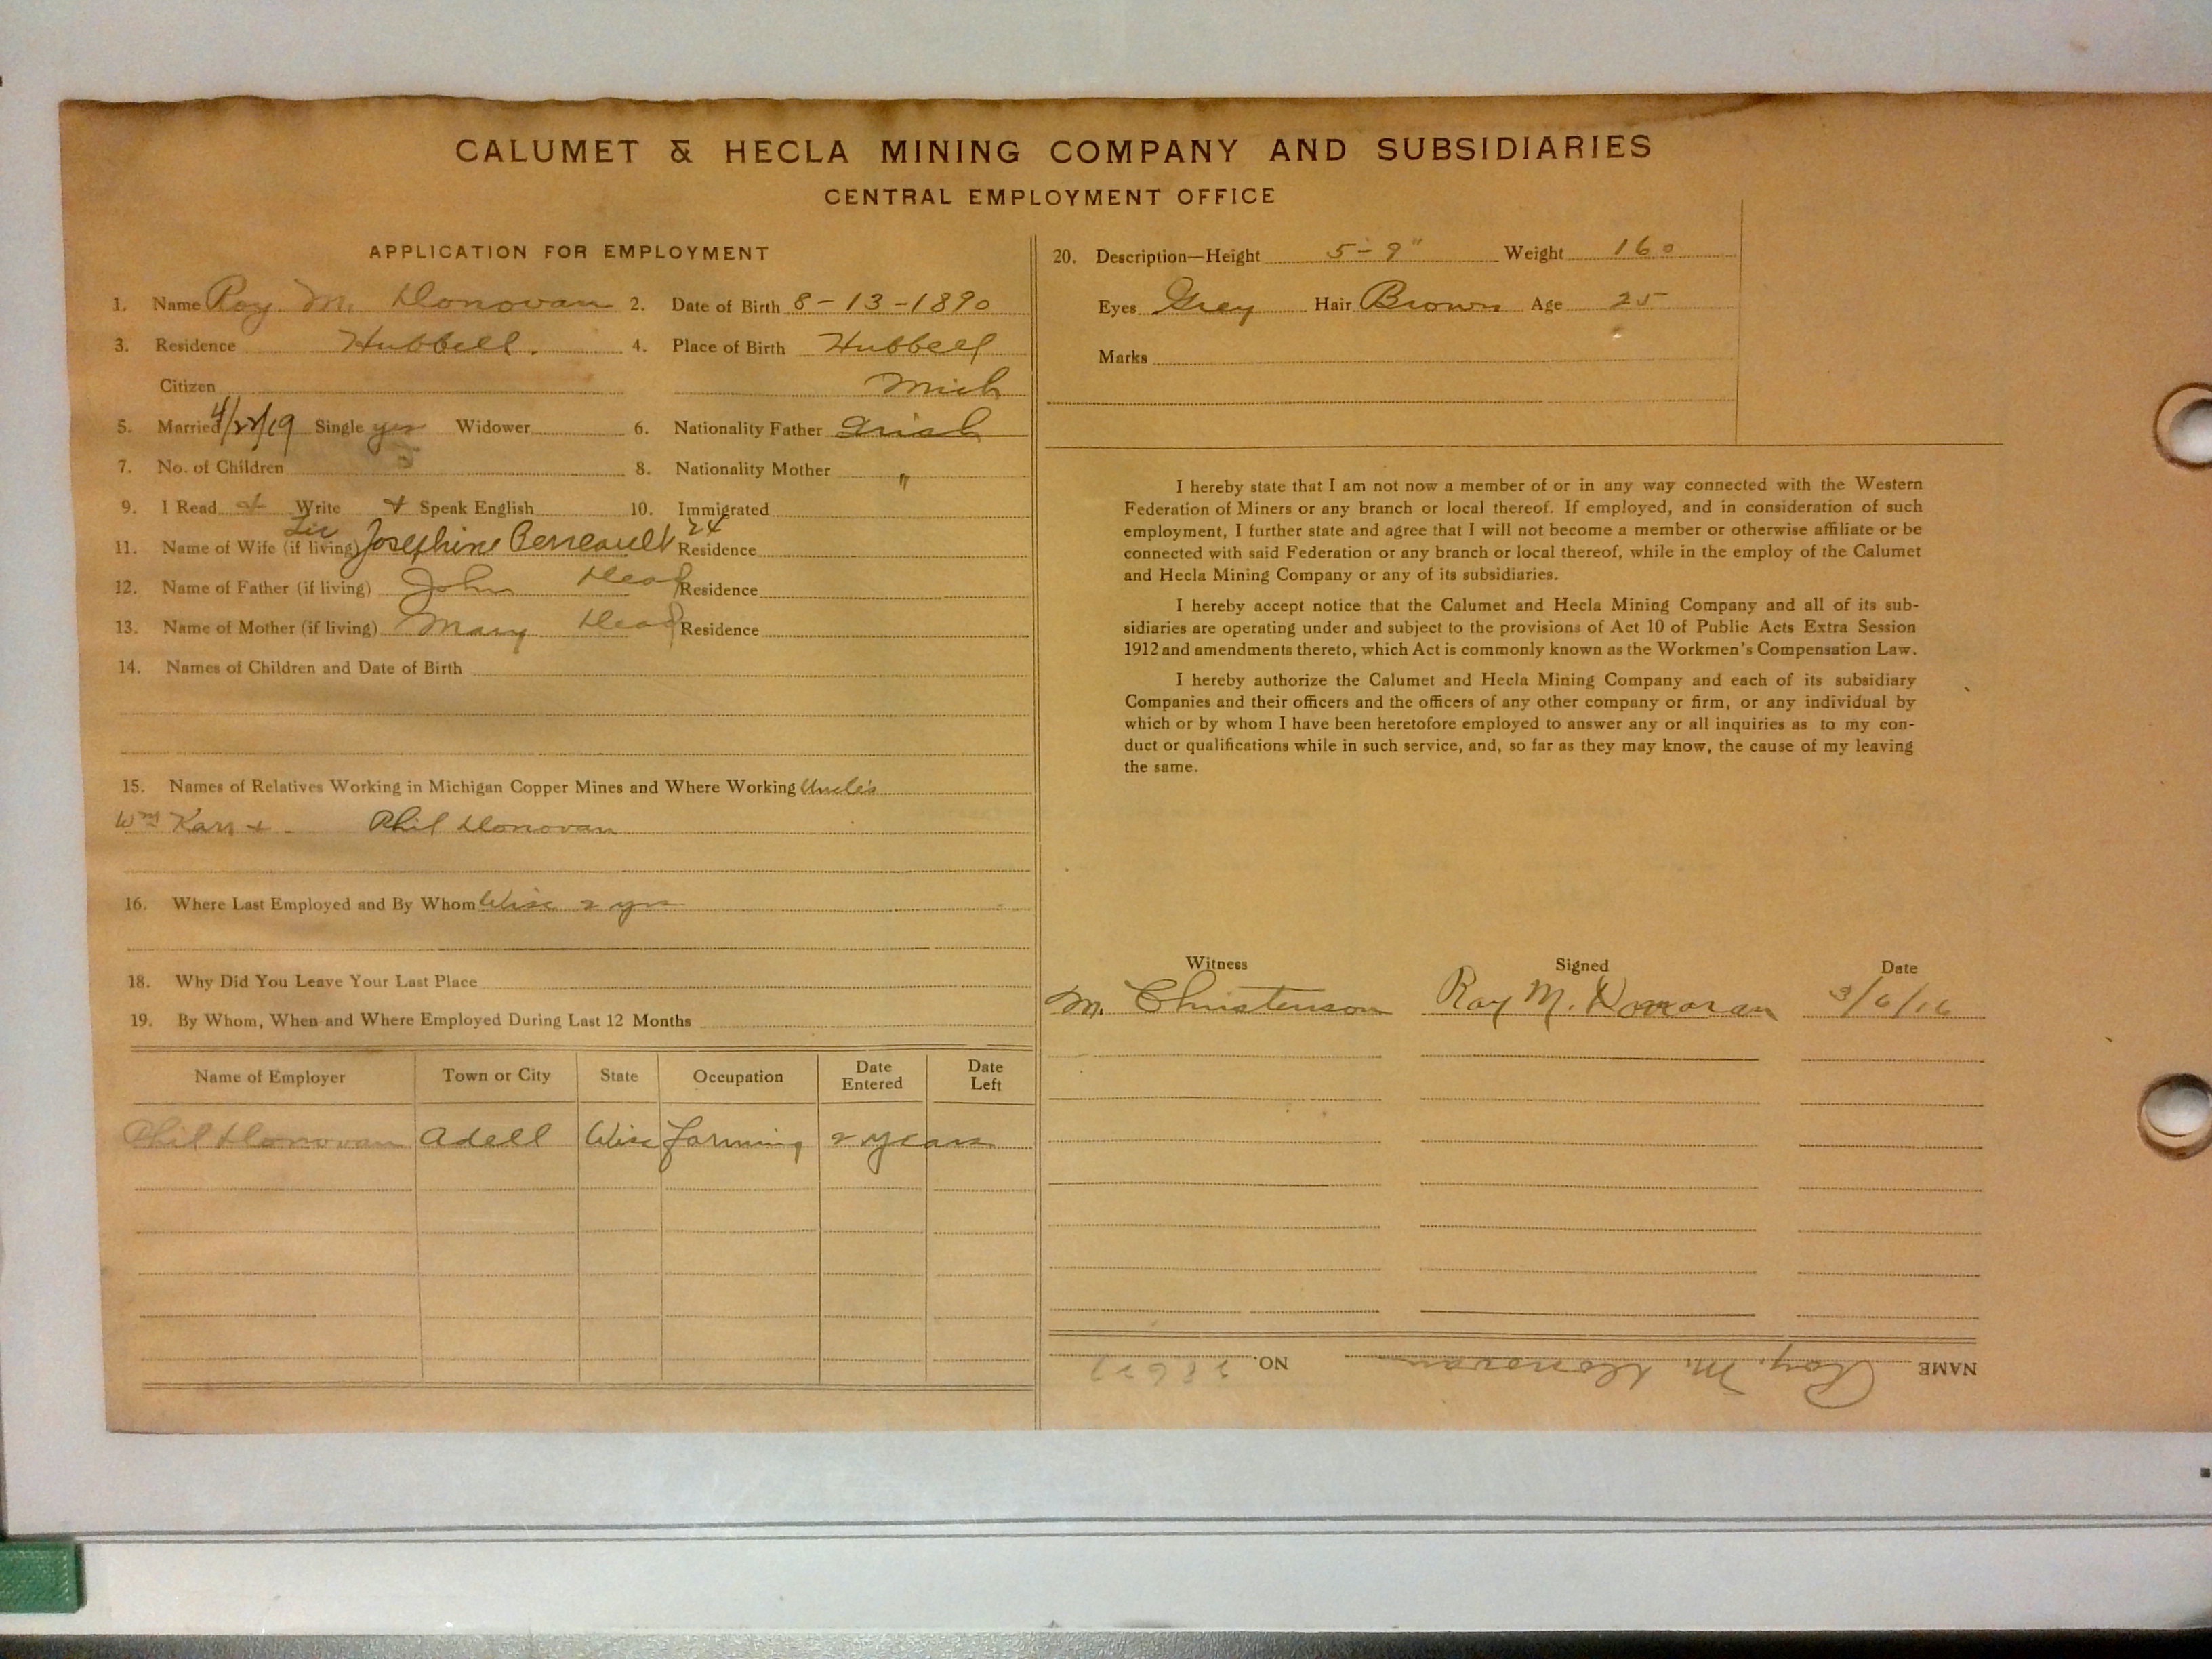 CALUMET & HECLA MINING COMPANY AND SUBSIDIARIES
CENTRAL EMPLOYMENT OFFICE
APPLICATION FOR EMPLOYMENT
1. Name Roy. M. Donovan 2. Date of Birth 8-13-1890
3. Residence Hubbell. 4. Place of Birth Hubbell
Citizen Mich
5. Married 4/22/19 Single yes Widower 6. Nationality Father Irish
7. No. of Children 8. Nationality Mother "
9. I Read + Write + Speak English 10. Immigrated
11. Name of Wife (if living) Josephine Perreault 24 Residence
12. Name of Father (if living) John Dead Residence
13. Name of Mother (if living) Mary Dead Residence
14. Names of Children and Date of Birth
15. Names of Relatives Working in Michigan Copper Mines and Where Working Uncles
Wm Karr + - Phil Donovan
16. Where Last Employed and By Whom Wisc 2 yrs
18. Why Did You Leave Your Last Place
19. By Whom, When and Where Employed During Last 12 Months
Name of Employer Town or City State Occupation Date Entered Date Left
Phil Donovan Adell Wisc farming 2 years
20. Description—Height 5-9" Weight 160
Eyes Grey Hair Brown Age 25
Marks
I hereby state that I am not now a member of or in any way connected with the Western
Federation of Miners or any branch or local thereof. If employed, and in consideration of such
employment, I further state and agree that I will not become a member or otherwise affiliate or be
connected with said Federation or any branch or local thereof, while in the employ of the Calumet
and Hecla Mining Company or any of its subsidiaries.
I hereby accept notice that the Calumet and Hecla Mining Company and all of its sub-
sidiaries are operating under and subject to the provisions of Act 10 of Public Acts Extra Session
1912 and amendments thereto, which Act is commonly known as the Workmen's Compensation Law.
I hereby authorize the Calumet and Hecla Mining Company and each of its subsidiary
Companies and their officers and the officers of any other company or firm, or any individual by
which or by whom I have been heretofore employed to answer any or all inquiries as to my con-
duct or qualifications while in such service, and, so far as they may know, the cause of my leaving
the same.
Witness Signed Date
M. Christenson Roy M. Donovan 3/6/16
NAME Roy. M. Donovan NO.